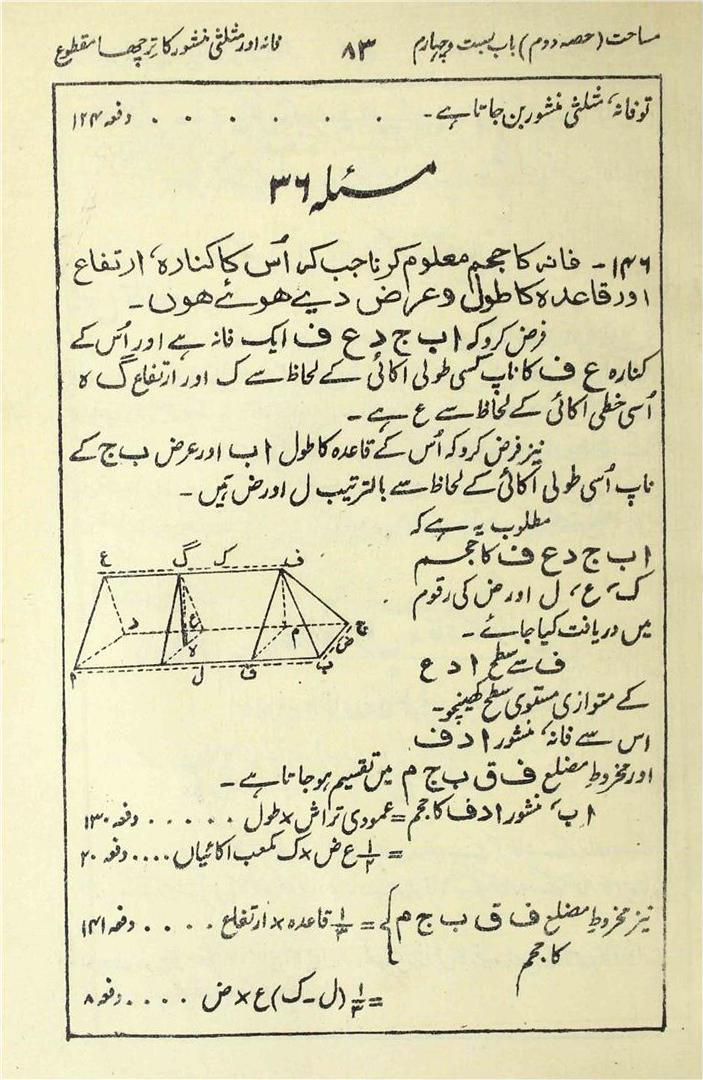 مساحت (حصہ دوم) باب بست و چہارم ۸۳ فانہ اور مثلثی منشور کا ترچھا مقطوع
تو فانہ، مثلثی منشور بن جاتا ہے۔ . . . . . . دفعہ ۱۲۴
مسئلہ ۳۶
۱۴۶۔ فانہ کا حجم معلوم کرنا جب کہ اُس کا کنارہ، ارتفاع
اور قاعدہ کا طول و عرض دیے ہوئے ہوں۔
فرض کرو کہ ا ب ج د ع ف ایک فانہ ہے اور اُس کے
کنارہ ع ف کا ناپ کسی طولی اکائی کے لحاظ سے ک اور ارتفاع گ ہ
اُسی خطی اکائی کے لحاظ سے ع ہے۔
نیز فرض کرو کہ اُس کے قاعدہ کا طول ا ب اور عرض ب ج کے
ناپ اُسی طولی اکائی کے لحاظ سے بالترتیب ل اور ض ہیں۔
مطلوب یہ ہے کہ
ا ب ج د ع ف کا حجم
ک، ع، ل اور ض کی رقوم
میں دریافت کیا جائے۔
ف سے سطح ا د ع
کے متوازی مستوی سطح کھینچو۔
ع گ ک ف
د ع م ج
ہ ض
م ل ق ب
اس سے فانہ، منشور ا د ف
اور مخروطِ مضلع ف ق ب ج م میں تقسیم ہو جاتا ہے۔
اب، منشور ا د ف کا حجم = عمودی تراش × طول . . . . . دفعہ ۱۳۰
= ½ ع ض × ک مکعب اکائیاں . . . . دفعہ ۲۰
نیز مخروطِ مضلع ف ق ب ج م کا حجم } = ⅓ قاعدہ × ارتفاع . . . . دفعہ ۱۴۱
= ⅓ (ل - ک) ع × ض . . . . دفعہ ۸